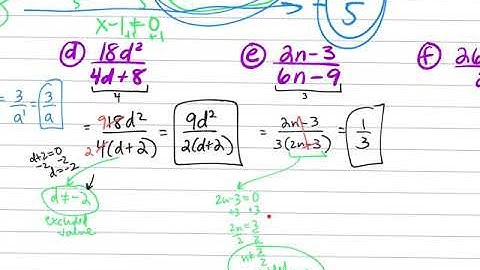 x-1≠0
+1 +1
5
d 18d²/4d+8
4
e 2n-3/6n-9
3
f 26
= 3/a' = 3/a
= 9 18d²/2 4(d+2) = 9d²/2(d+2)
= 2n-3/3(2n-3) = 1/3
d+2=0
-2 -2
d=-2
d≠-2
excluded
value
2n-3=0
+3 +3
2n=3
2 2
n≠3/2